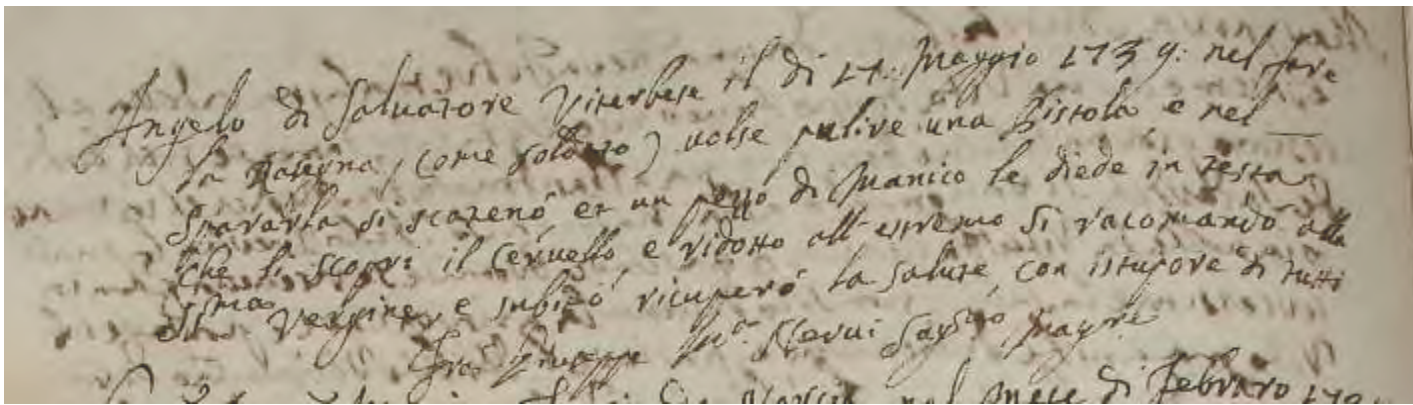 Angelo di Salvatore Viterbese il dì 17. Maggio 1739: nel fare
la Rasegna, (come soldato) volse pulire una Pistola e nel
sparàrla si scatenò et un pezzo di Manico le diede in testa
che li scoprì il Cervello e ridotto all'estremo si racomandò alla
SSma Vergine, e subitò ricuperò la salute, con istupore di tutti
Giuseppe
nel Mese di Febraro